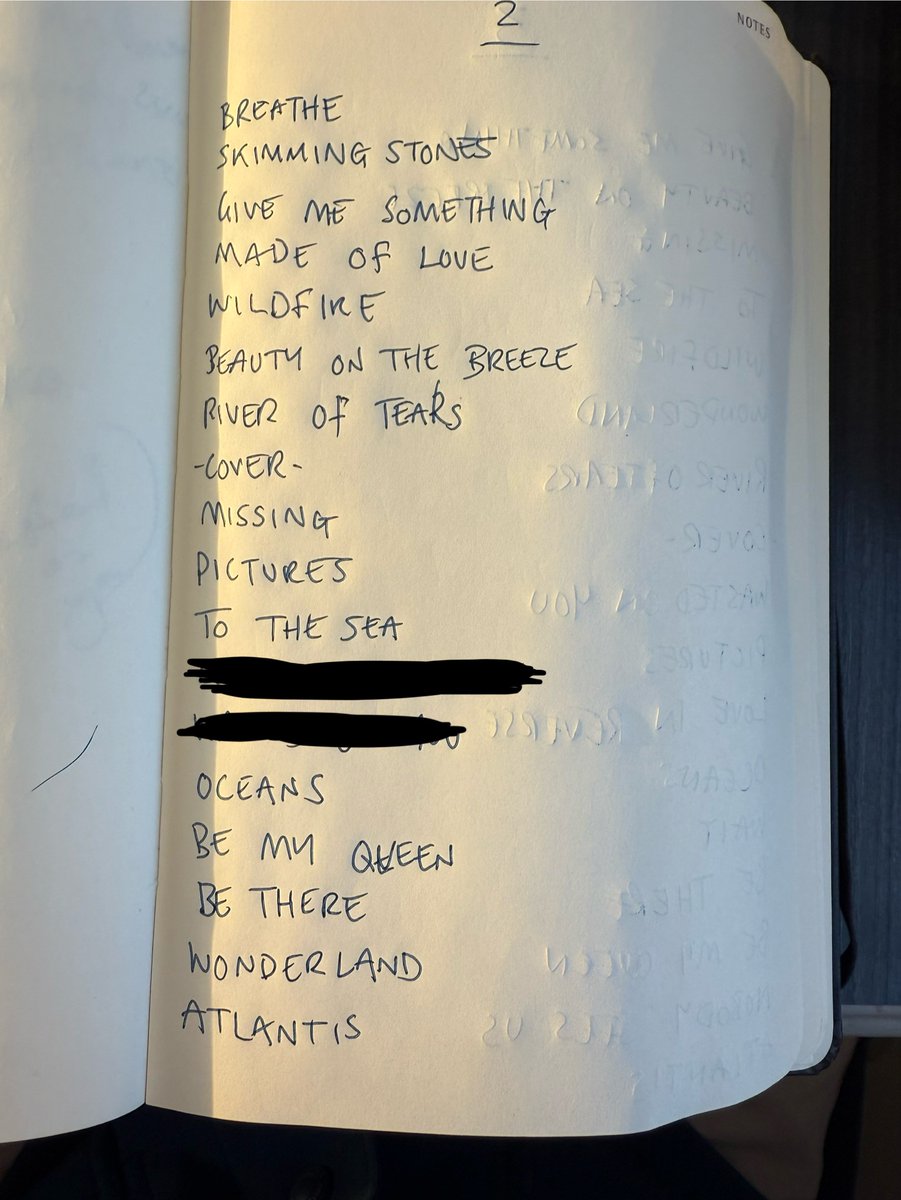 2
NOTES
BREATHE
SKIMMING STONES
GIVE ME SOMETHING
MADE OF LOVE
WILDFIRE
BEAUTY ON THE BREEZE
RIVER OF TEARS
-COVER-
MISSING
PICTURES
TO THE SEA
OCEANS
BE MY QUEEN
BE THERE
WONDERLAND
ATLANTIS